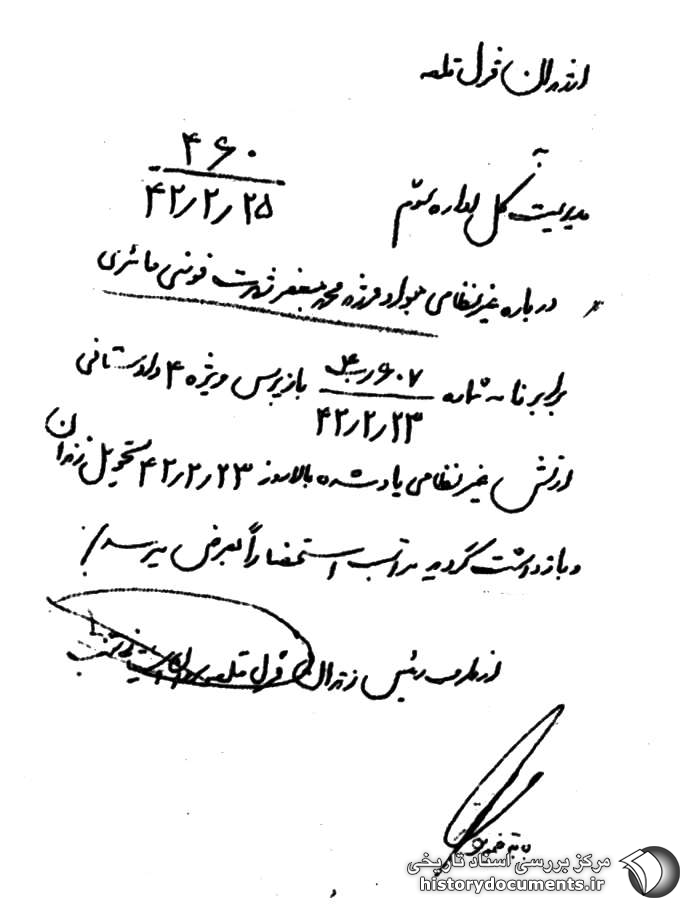 از زندان قزل قلعه
به
مدیریت کل اداره سوم
۴۶۰
۴۲/۲/۲۵
درباره غیرنظامی جواد فرزند محمدجعفر شهرت فومنی حائری
برابر نامه شماره ۶۰۷ بازپرس ویژه ۴ دادستانی
۴۲/۲/۲۳
ارتش غیرنظامی یاد شده بالا روز ۴۲/۲/۲۳ تحویل زندان
و بازداشت گردید مراتب استحضاراً بعرض میرسد/
از طرف رئیس زندان قزل قلعه
مرکز بررسی اسناد تاریخی
historydocuments.ir